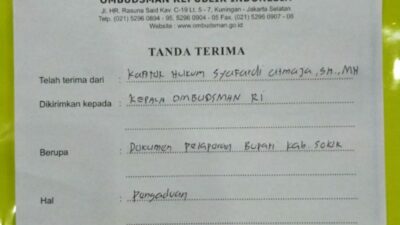 OMBUDSMAN REPUBLIK INDONESIA
Jl. HR. Rasuna Said Kav. C-19 Lt. 5 - 7, Kuningan - Jakarta Selatan
Telp. (021) 5296 0894 - 95, 5296 0904 - 05 Fax. (021) 5296 0907 - 06
Website : www.ombudsman.go.id
TANDA TERIMA
Telah terima dari : Kantor Hukum Syafardi Atmaja, SH., MH
Dikirimkan kepada : KEPALA OMBUDSMAN RI
Berupa : Dokumen Pelaporan Bupati Kab. Solok
Hal : Pengaduan